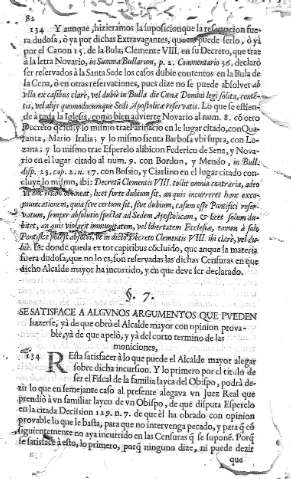 82
134 Y aunque hizieramos la suposicion que la reservacion fue-
ra dudosa, ò ya por dichas Extravagantes, que no puede serlo, ò yà
por el Canon 15. de la Bula; Clemente VIII. en su Decreto, que trae
à la letra Novario, in Summa Bullarum, p. 2. Commentario 36. declarò
ser reservados à la Santa Sede los casos dubios contentos en la Bula
de la Cena, ò en otras reservaciones, pues dize no se puede absolver ab
illis ex casibus clarè, vel dubiè in Bulla in Cœna Domini legi solita, conten-
tis, vel alijs quomodocunque Sedi Apostolicæ reservatis. Lo que se estien-
de à toda la Iglesia, como bien advierte Novario al num. 8. òtro
Decreto dicho; y lo mismo trae afirmado en le lugar citado, con Qua-
ranta, Mario Italia: y lo mismo sienta Barbosa ubi supra, con Le-
zana: y lo mismo trae Esperelo alibicon Federico de Sena, y Nova-
rio en el lugar citado al num. 9. con Bordon, y Mendo, in Bull.
disp. 23. cap. 2. n. 17. con Bossio, y Ciarlino en el lugar citado con-
cluye lo mismo, ibi: Decretū Clementis VIII. tulit omnia contraria, adeò
licet forte dubium sit, an quis incurrerit hanc exco-
municationem, quia sive certum sit, sive dubium, casum esse Pontifici reser-
vatum, semper absolutio spectat ad Sedem Apostolicam, & licet solum du-
bitet, an quis violarit immunitatem, vel libertatem Ecclesiæ, tamen à solo
Pontifice potest absolvi, ut in dicto Decreto Clementis VIII. ibi clarè, vel du-
biè. De donde queda ex tot capitibus cōcluido, que aunque la materia
fuera dudosa, que no lo es, son reservadas las dichas Censuras en que
dicho Alcalde mayor ha incurrido, y en que deve ser declarado.
§. 7.
SE SATISFACE A ALGVNOS ARGUMENTOS QVE PVEDEN
hazerse, yà de que obrò el Alcalde mayor con opinion prova-
ble, yà de que apelò, y yà del corto termino de las
moniciones,
134 Resta satisfacer à lo que puede el Alcalde mayor alegar
sobre dicha incursion. Y lo primero por el titulo de
ser el Fiscal de la familia layca del Obispo, podrà de-
zir lo que en semejante caso al presente alegava vn Juez Real que
prendiò à vn familiar layco de vn Obispo, de que disputa Esperelo
en la citada Decision 119. n. 7. de que èl ha obrado con opinion
provable lo que le basta, para que no intervenga pecado, y para q̃ cō-
siguientemente no aya incurrido en las Censuras q̃ se supone. Porq̃
se satisface à esto, lo primero, porq̃ ninguno dize, ni puede dezir
que